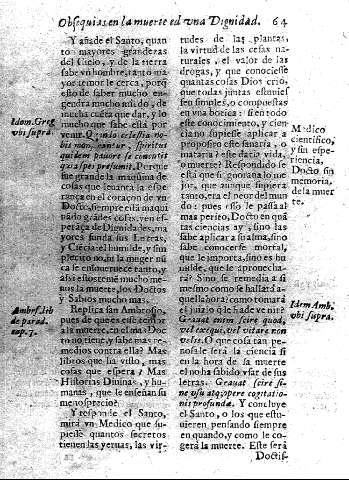 Obsequias en la muerte ed vna Dignidad. 64
Y añade el Santo, quan
to mayores grandezas
del Cielo, y de la tierra
sabe vn hombre, tanto ma
yor temor le cerca, porq̃
esto de saber mucho en
gendra mucho miedo, de
mucha cuēta que dar, y lo
mucho que sabe està por
venir. Quando celestia no-
bis non, spiritus
quidem pauore se concutit
præsumit. Porque
fue grande la maxima de
cosas que leuanta la espe
rança en el coraçon de vn
Docto, siempre està maqui
nando grādes cosas, yen es-
perāça de Dignidades, ma
yores funda sus Letras,
y Ciēcia: el humilde, y sim
ple, como no
le ensoueruece tanto, y
assi este teme mucho me-
nos la muerte, los Doctos
y Sabios mucho mas.
Replica san Ambrosio,
pues de que es este temer
a la muerte, en el mas Doc
to no tiene, y sabe mas re-
medios contra ella? Mas
libros que ha visto, mas
cosas que espera? Mas
Historias Diuinas, y hu-
manas, que le enseñan su
menosprecio?
Y responde el Santo,
mirà vn Medico que su-
piesse quantos secretos
tienen las yeruas, las vir-
Idem Greg.
vbi supra.
Ambros. lib
de parad.
cap. 7.
tudes de las plantas,
la virtud de las cosas na-
turales, el valor de las
drogas, y que conociesse
quantas cosas Dios criò,
que todas juntas estuuies
sen simples, o compuestas
en vna botica: si en todo
este conocimiento, y cien-
cia no supiesse aplicar a
proposito este sanaria, o
mataria? este daria vida,
o muerte? Respondido se
està que si ignorara lo me
jor, que aunque supiera
tanto, era el peor del mun
do: pues esso le passa al
mas perito, Docto en quā
tas ciencias ay, sino las
sabe aplicar a su alma, sino
sabe conocerse mortal,
que le importa, sino es hu
milde, que le aprouecha-
ra? Sino se remedia a si
mesmo como se hallarà a
quella hora? como tomarà
el juizio q̃ le hade venir?
Grauat enim scire quod,
vel exequi, vel vitare non
velis. O que cosa tan pe-
nosa le serà la ciencia si
en la hora de la muerte
el no ha sabido vsar de sus
letras. Grauat scire si-
ne vsu atq; opere cogitatio-
nis profundæ. Y concluye
el Santo, o los que estu-
uieren, pensando siempre
en quando, y como le co-
gerà la muerte. Este serà
Doctis-
Medico
cientifico,
y sin espe-
riencia,
Docto sin
memoria,
de la muer
te.
Idem Amb.
vbi supra.